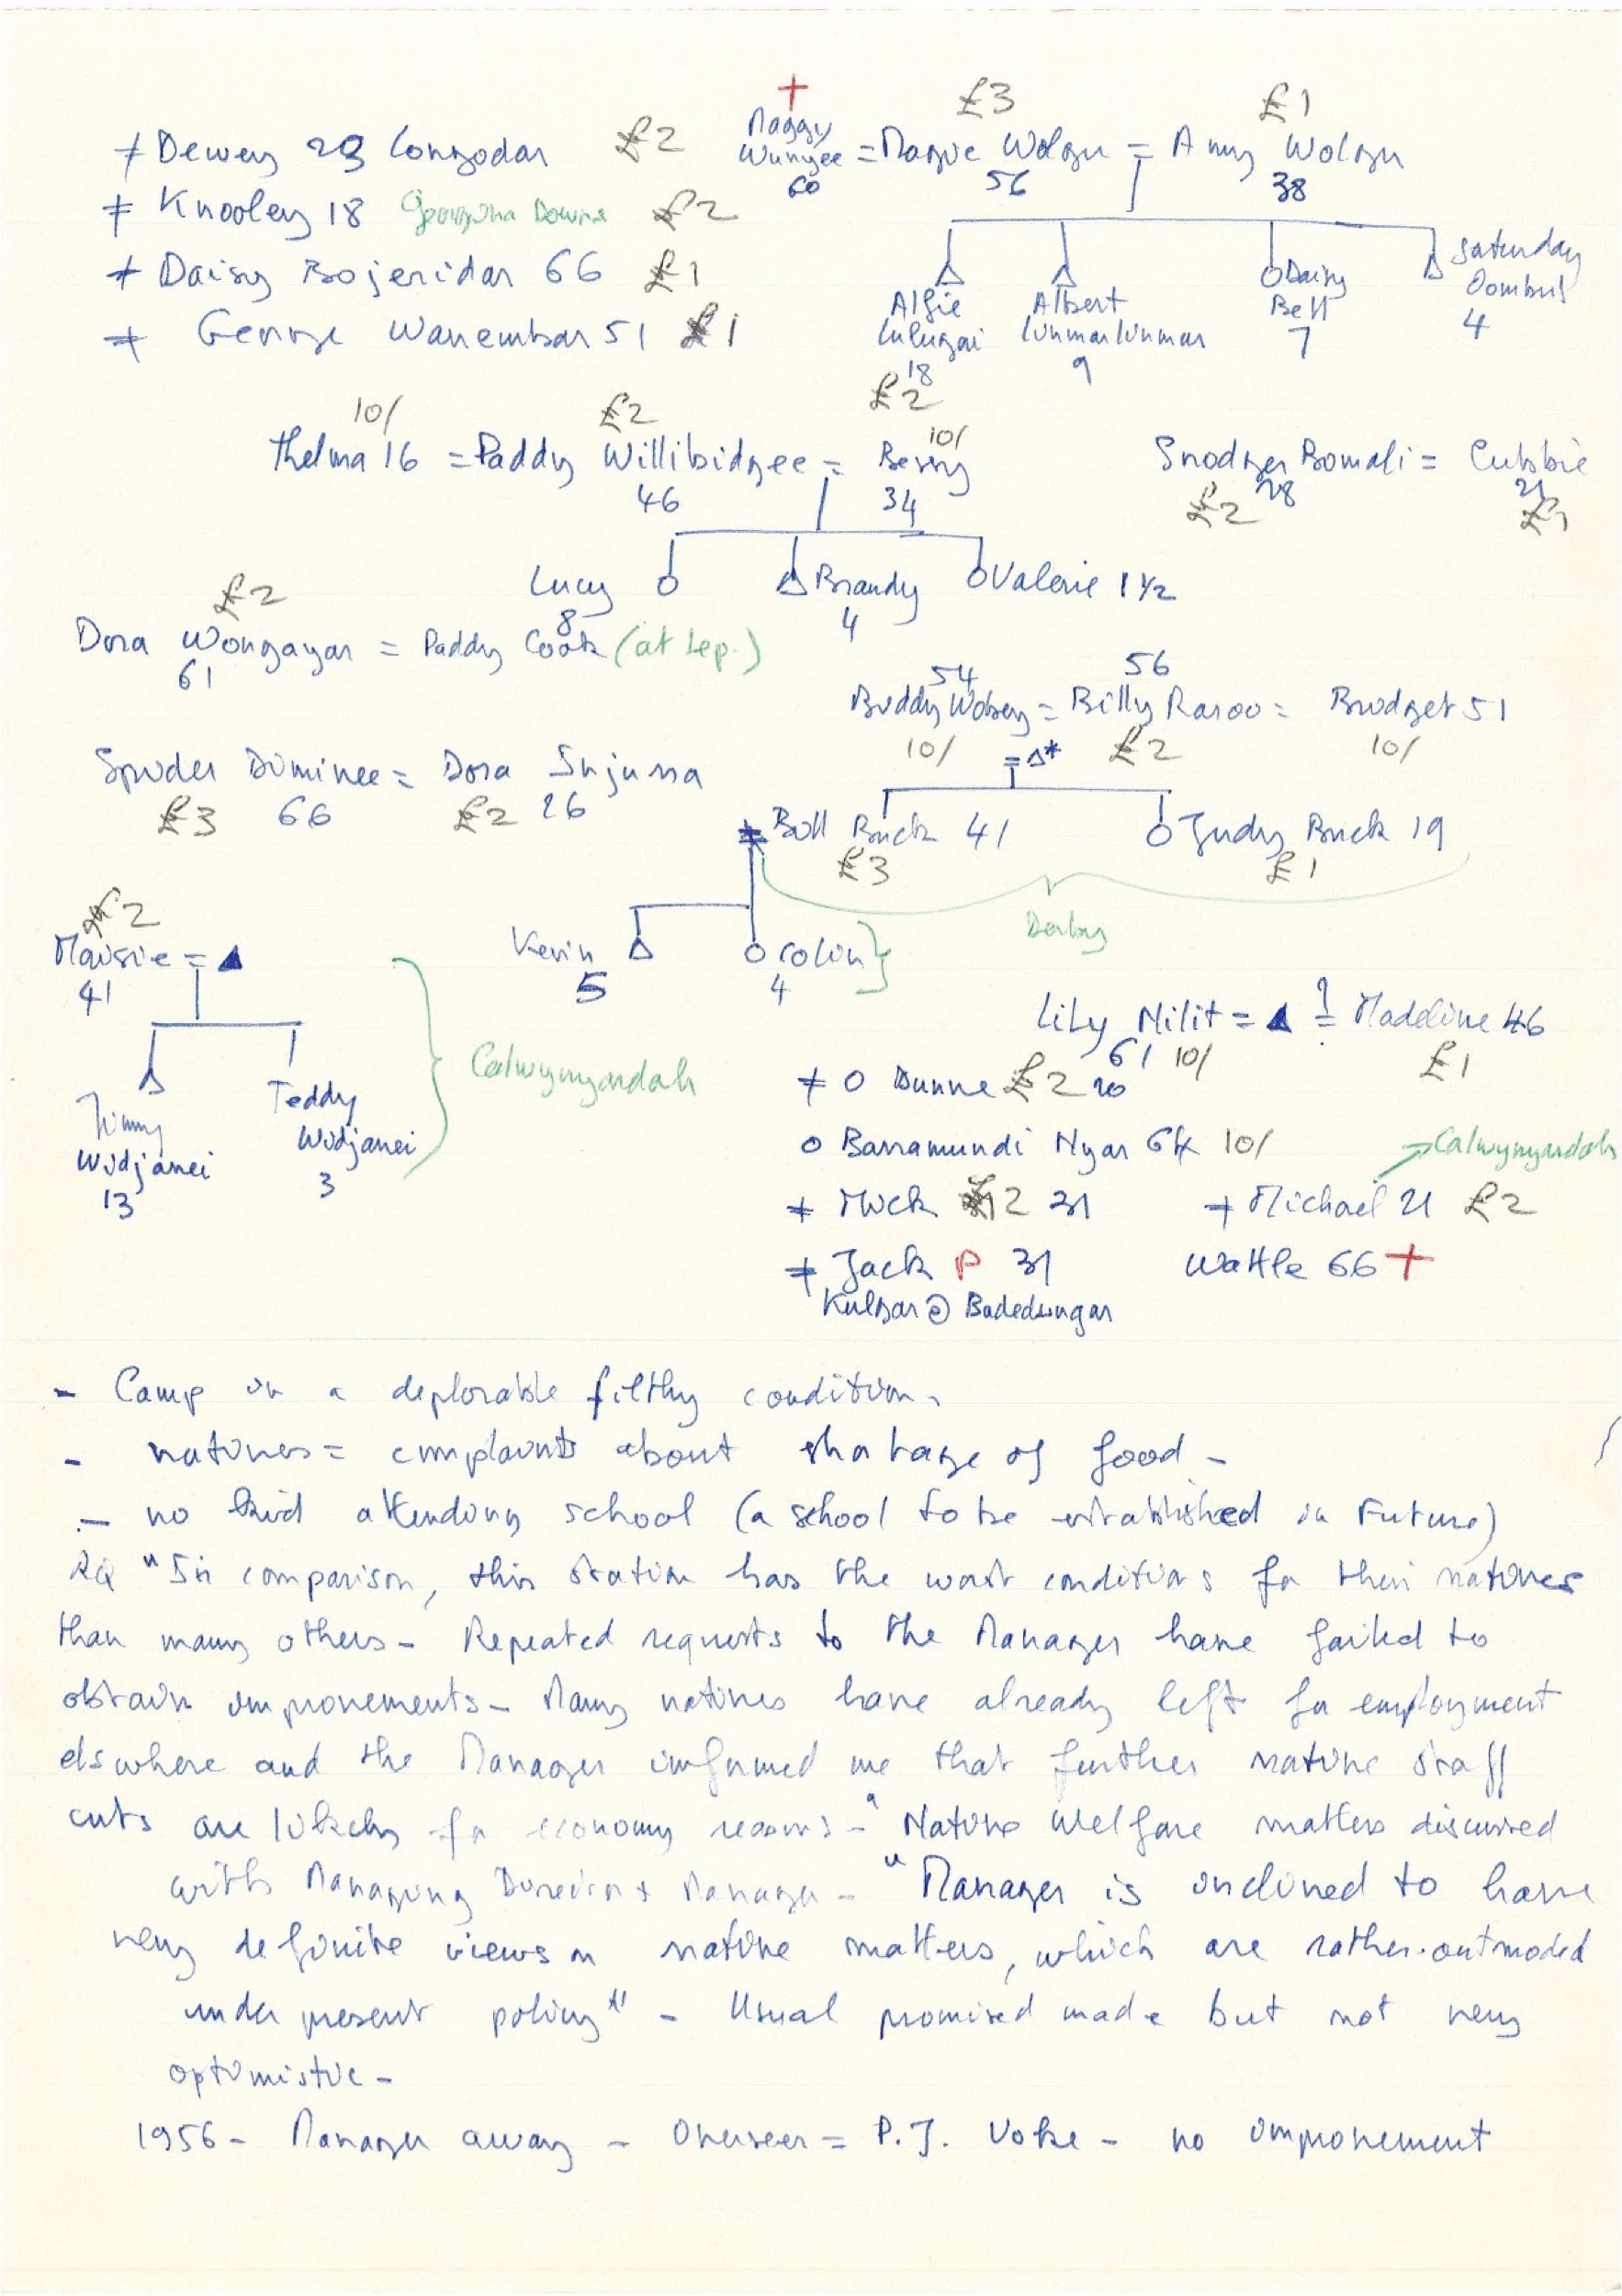 +
£3
£1
≠ Dewey 23 Congodar £2
Maggy
Wungee = Magic Wolgu = Amy Wolgu
60 56 38
≠ Knooley 18 Georgina Downs £2
≠ Daisy Bojeridar 66 £1
≠ George Wanembar 51 £1
Alfie Albert Daisy Saturday
Lulugai Lunmarlunmar Bell Dombul
18 9 7 4
£2
10/ £2 10/
Thelma 16 = Paddy Willibidgee = Bessy
46 34
Snodger Bomali = Cubbie
£2 28 21 £1
Lucy Brandy Valerie 1 1/2
8 4
£2
Dora Wongayar = Paddy Cook (at Lep.)
61
54 56
Buddy Wobey = Billy Raroo = Bridget 51
10/ £2 10/
= *
Spider Diminee = Dora Injurra
£3 66 £2 26
Bill Buck 41 Judy Buck 19
£3 £1
Derby
£2
Maisie =
41
Kevin Colin
5 4
Calwynyardah
Jimmy Teddy
Widjanei Widjanei
13 3
Lily Nilit = ? = Madeline 46
61 10/ £1
≠ O Dunne £2 20
O Barramundi Nyar 64 10/
Calwynyardah
≠ Mick £2 31 ≠ Michael 21 £2
≠ Jack P 31 Wattle 66 +
Kulbar @ Badedungar
- Camp in a deplorable filthy condition.
- natives = complaints about shortage of food -
- no kid attending school (a school to be established in Future)
RQ "In comparison, this station has the worst conditions for their natives
than many others - Repeated requests to the Manager have failed to
obtain improvements - Many natives have already left for employment
elswhere and the Manager informed me that further native staff
cuts are likely for economy reasons - " Native Welfare matters discussed
with Managing Director + Manager - "Manager is inclined to have
very definite views on native matters, which are rather outmoded
under present policy" - Usual promised made but not very
optimistic -
1956 - Manager away - Overseer = P.J. Voke - no improvement